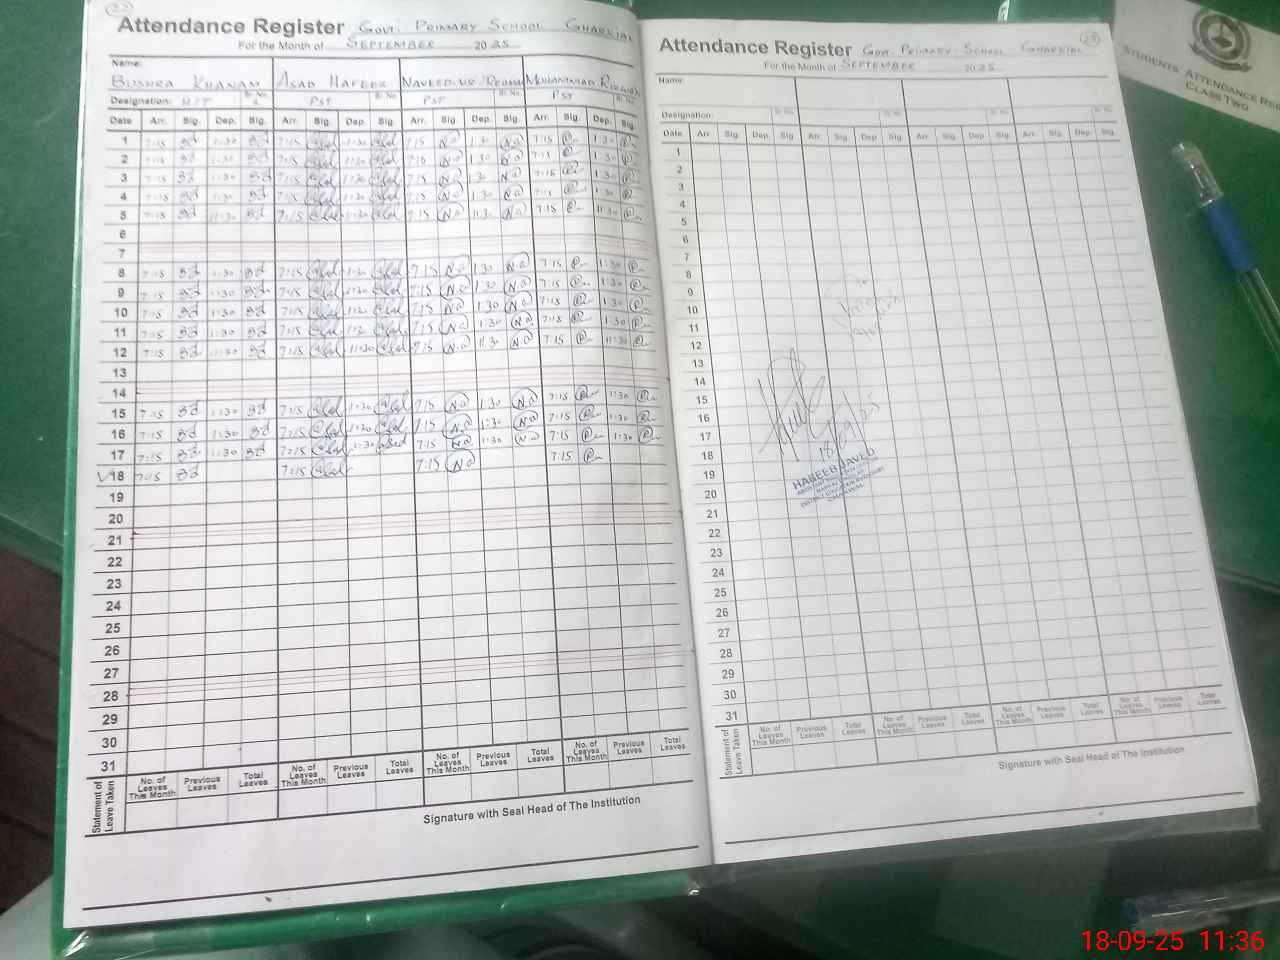 22
Attendance Register Govt. Primary School Gharkial
For the Month of September 2025
Name:
Bushra Khanam Asad Hafeez Naveed-ur-Rehman Muhammad Rizwan
Designation: PST PST PST
Date Arr. Sig. Dep. Sig. Arr. Sig. Dep. Sig. Arr. Sig. Dep. Sig. Arr. Sig. Dep. Sig.
1 7:15 1:30 7:15 1:30 7:15 1:30 7:15 1:30
2 7:15 1:30 7:15 1:30 7:15 1:30 7:15 1:30
3 7:15 1:30 7:15 1:30 7:15 1:30 7:15 1:30
4 7:15 1:30 7:15 1:30 7:15 1:30 7:15 1:30
5 7:15 11:30 7:15 11:30 7:15 11:30 7:15 11:30
6
7
8 7:15 1:30 7:15 1:30 7:15 1:30 7:15 1:30
9 7:15 1:30 7:15 1:30 7:15 1:30 7:15 1:30
10 7:15 1:30 7:15 1:30 7:15 1:30 7:15 1:30
11 7:15 1:30 7:15 1:30 7:15 1:30 7:15 1:30
12 7:15 11:30 7:15 11:30 7:15 11:30 7:15 11:30
13
14
15 7:15 1:30 7:15 1:30 7:15 1:30 7:15 1:30
16 7:15 1:30 7:15 1:30 7:15 1:30 7:15 1:30
17 7:15 1:30 7:15 1:30 7:15 1:30 7:15 1:30
18 7:15 7:15 7:15 7:15
19
20
21
22
23
24
25
26
27
28
29
30
31
Statement of Leave Taken
No. of Leaves This Month Previous Leaves Total Leaves No. of Leaves This Month Previous Leaves Total Leaves No. of Leaves This Month Previous Leaves Total Leaves No. of Leaves This Month Previous Leaves Total Leaves
Signature with Seal Head of The Institution
23
Attendance Register Govt. Primary School Gharkial
For the Month of September 2025
Name:
Designation:
Date Arr. Sig. Dep. Sig. Arr. Sig. Dep. Sig. Arr. Sig. Dep. Sig. Arr. Sig. Dep. Sig.
1
2
3
4
5
6
7
8
9
10
11
12
13
14
15
16
17
18
19
20
21
22
23
24
25
26
27
28
29
30
31
18/09/25
HASEEB JAVED
Statement of Leave Taken
No. of Leaves This Month Previous Leaves Total Leaves No. of Leaves This Month Previous Leaves Total Leaves No. of Leaves This Month Previous Leaves Total Leaves No. of Leaves This Month Previous Leaves Total Leaves
Signature with Seal Head of The Institution
STUDENTS' ATTENDANCE
CLASS TWO
18-09-25 11:36